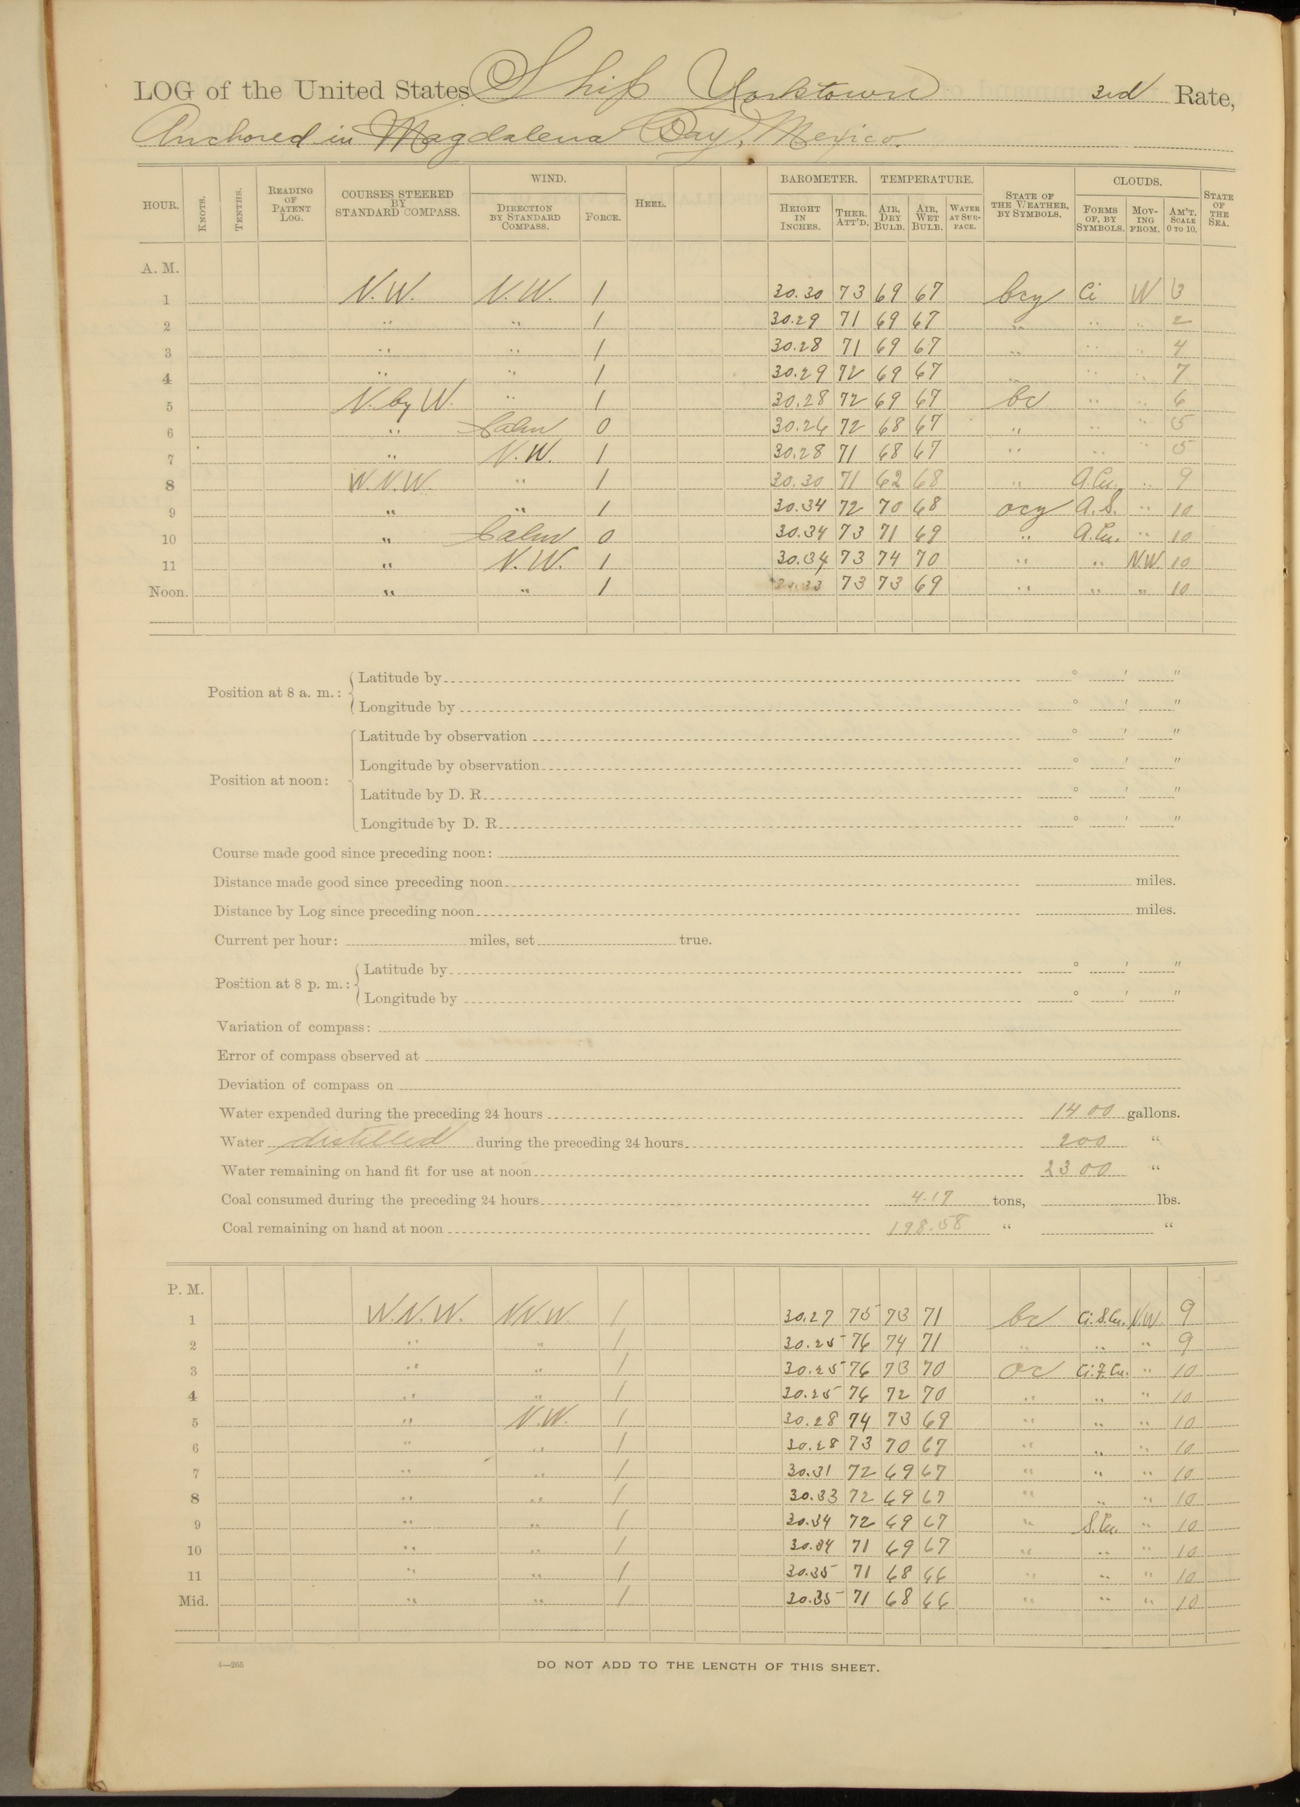 LOG of the United States Ship Yorktown 3rd Rate,
Anchored in Magdalena Bay, Mexico.
HOUR. KNOTS. TENTHS. READING OF PATENT LOG. COURSES STEERED BY STANDARD COMPASS. WIND. DIRECTION BY STANDARD COMPASS. FORCE. HEEL. BAROMETER. HEIGHT IN INCHES. THER. ATT'D. TEMPERATURE. AIR, DRY BULB. AIR, WET BULB. WATER AT SURFACE. STATE OF THE WEATHER, BY SYMBOLS. CLOUDS. FORMS OF, BY SYMBOLS. MOVING FROM. AM'T. SCALE 0 TO 10. STATE OF THE SEA.
A. M.
1 N.W. N.W. 1 30.30 73 69 67 bcy Ci W 3
2 " " 1 30.29 71 69 67 " " " 2
3 " " 1 30.28 71 69 67 " " " 4
4 " " 1 30.29 72 69 67 " " " 7
5 N. by W. " 1 30.28 72 69 67 bc " " 6
6 " Calm 0 30.26 72 68 67 " " " 5
7 " N.W. 1 30.28 71 68 67 " " " 5
8 W.N.W. " 1 30.30 71 62 68 " A.Cu. " 9
9 " " 1 30.34 72 70 68 ocy A.S. " 10
10 " Calm 0 30.34 73 71 69 " A.Cu. " 10
11 " N.W. 1 30.34 73 74 70 " " N.W. 10
Noon. " " 1 30.33 73 73 69 " " " 10
Position at 8 a. m.: Latitude by ° ′ ″
Longitude by ° ′ ″
Position at noon: Latitude by observation ° ′ ″
Longitude by observation ° ′ ″
Latitude by D. R. ° ′ ″
Longitude by D. R. ° ′ ″
Course made good since preceding noon:
Distance made good since preceding noon miles.
Distance by Log since preceding noon miles.
Current per hour: miles, set true.
Position at 8 p. m.: Latitude by ° ′ ″
Longitude by ° ′ ″
Variation of compass:
Error of compass observed at
Deviation of compass on
Water expended during the preceding 24 hours 1400 gallons.
Water distilled during the preceding 24 hours 200 "
Water remaining on hand fit for use at noon 2300 "
Coal consumed during the preceding 24 hours 4.17 tons, lbs.
Coal remaining on hand at noon 198.58 " "
P. M.
1 W.N.W. N.N.W. 1 30.27 75 73 71 bc Ci.S.Cu. N.W. 9
2 " " 1 30.25 76 74 71 " " " 9
3 " " 1 30.25 76 73 70 oc Ci.F.Cu. " 10
4 " " 1 30.25 76 72 70 " " " 10
5 " N.W. 1 30.28 74 73 69 " " " 10
6 " " 1 30.28 73 70 67 " " " 10
7 " " 1 30.31 72 69 67 " " " 10
8 " " 1 30.33 72 69 67 " " " 10
9 " " 1 30.34 72 69 67 " S.Cu. " 10
10 " " 1 30.34 71 69 67 " " " 10
11 " " 1 30.35 71 68 66 " " " 10
Mid. " " 1 30.35 71 68 66 " " " 10
4—265
DO NOT ADD TO THE LENGTH OF THIS SHEET.